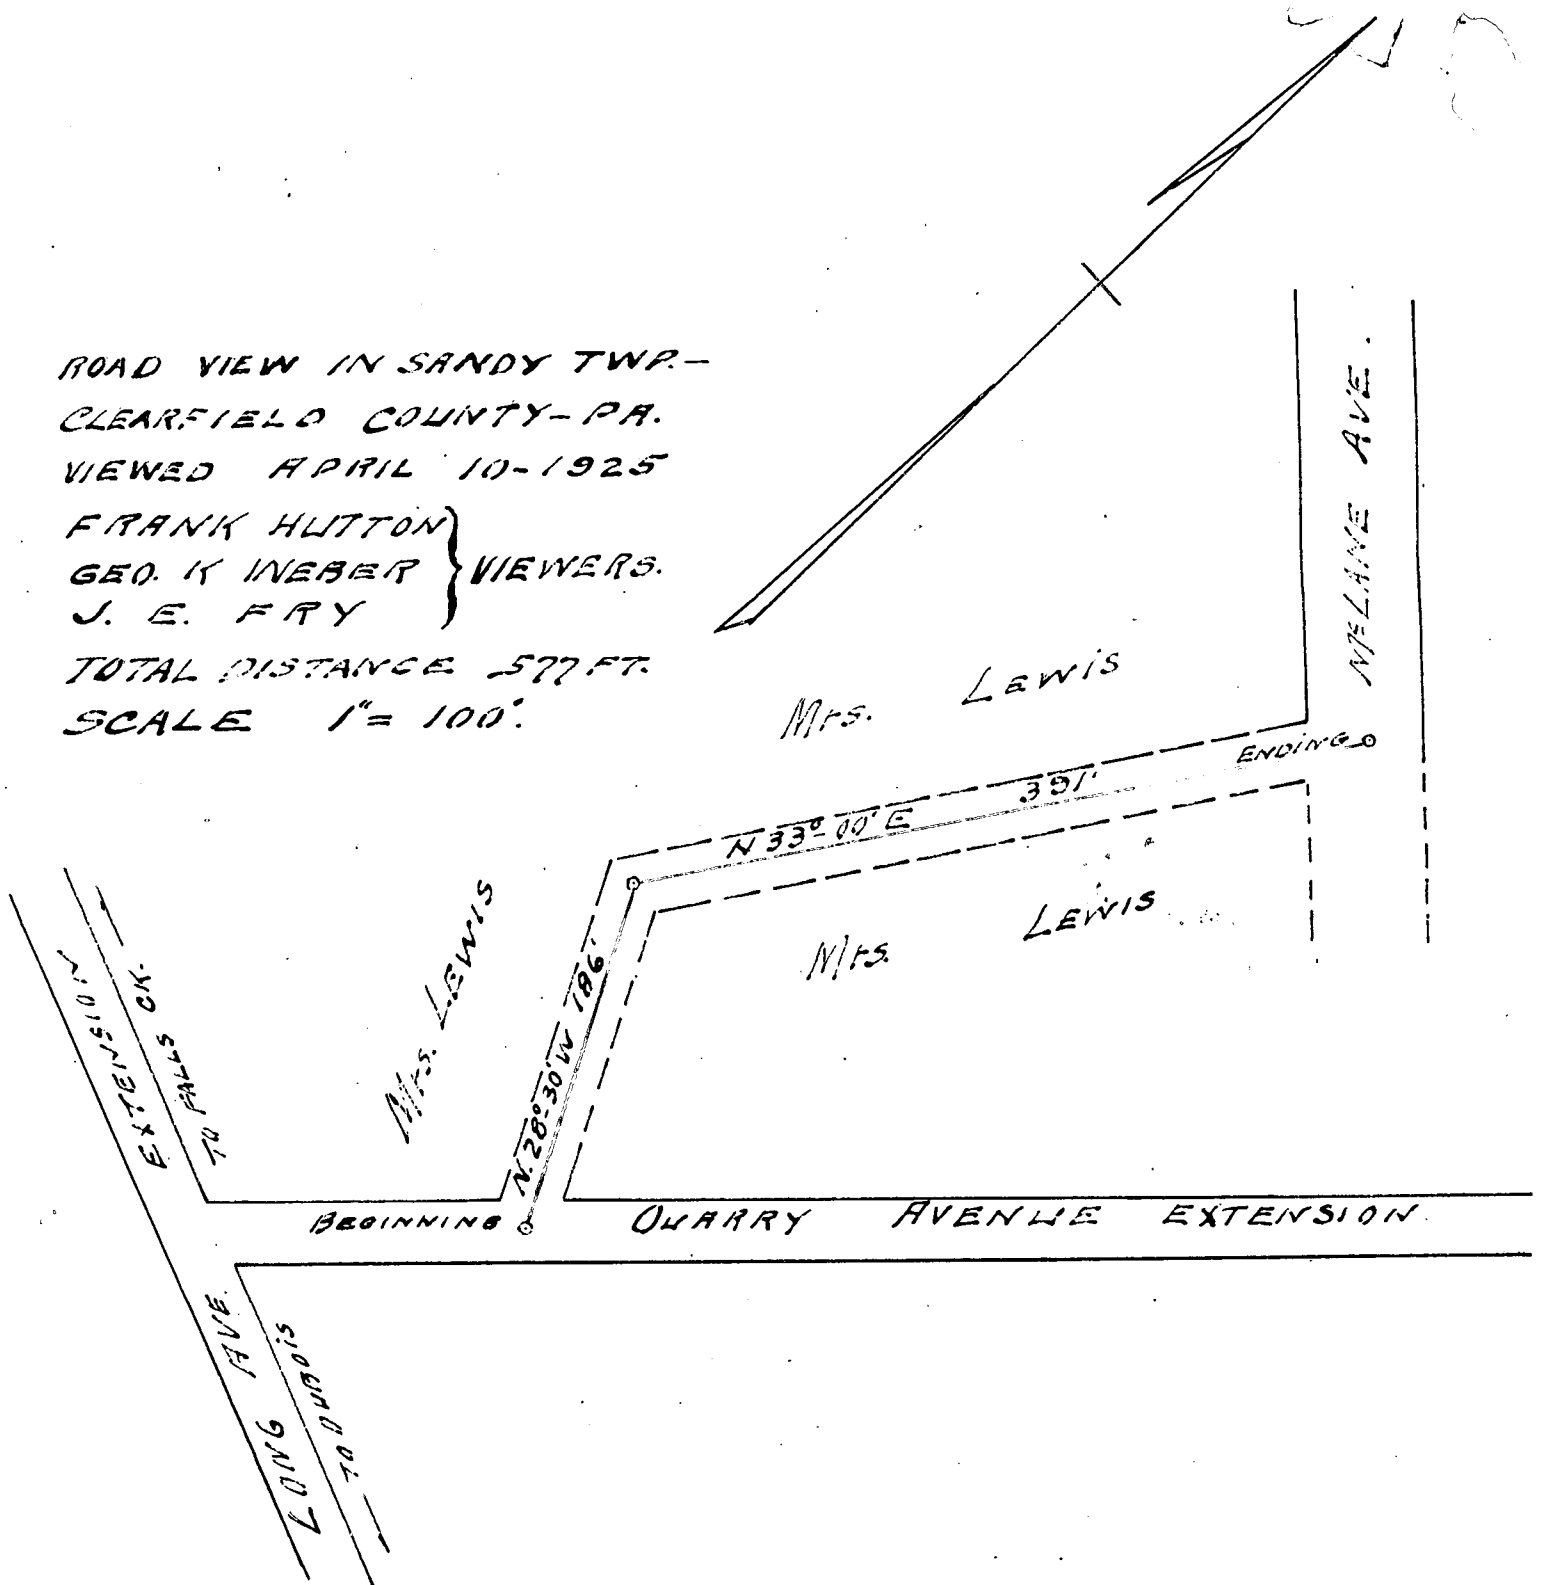 ROAD VIEW IN SANDY TWP.-
CLEARFIELD COUNTY-PA.
VIEWED APRIL 10-1925
FRANK HUTTON
GEO. K WEBER
J. E. FRY
VIEWERS.
TOTAL DISTANCE 577 FT.
SCALE 1"= 100'.
McLANE AVE.
Mrs. LEWIS
ENDING
N 33°-00' E 391'
Mrs. LEWIS
Mrs. LEWIS
N. 28°-30' W 186'
EXTENSION
TO FALLS CK.
BEGINNING
QUARRY AVENUE EXTENSION
LONG AVE.
TO DUBOIS